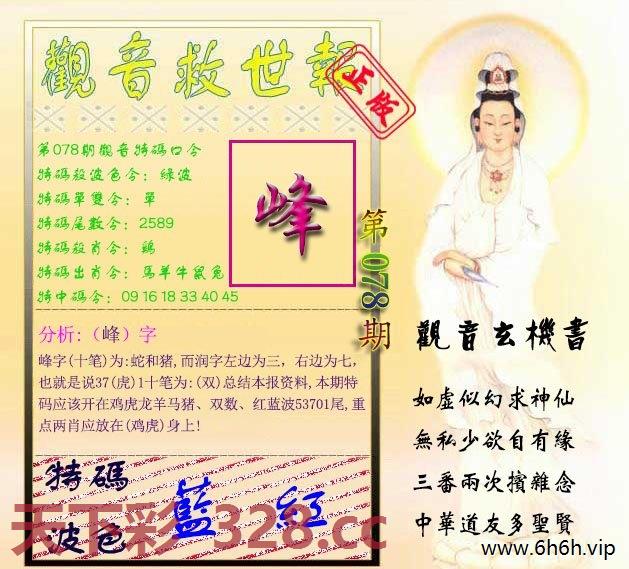 觀音救世報
正版
第078期觀音特碼口令
特碼殺波色令：綠波
特碼單雙令：單
特碼尾數令：2589
特碼殺肖令：鷄
特碼出肖令：馬羊牛鼠兔
特中碼令：09 16 18 33 40 45
峰
第078期
分析:（峰）字
峰字(十笔)为:蛇和猪,而润字左边为三，右边为七，
也就是说37(虎)1十笔为:(双)总结本报资料,本期特
码应该开在鸡虎龙羊马猪、双数、红蓝波53701尾,重
点两肖应放在(鸡虎)身上!
特碼
波色
藍 紅
天下彩 328.cc
觀音玄機書
如虛似幻求神仙
無私少欲自有緣
三番兩次擯雜念
中華道友多聖賢
www.6h6h.vip